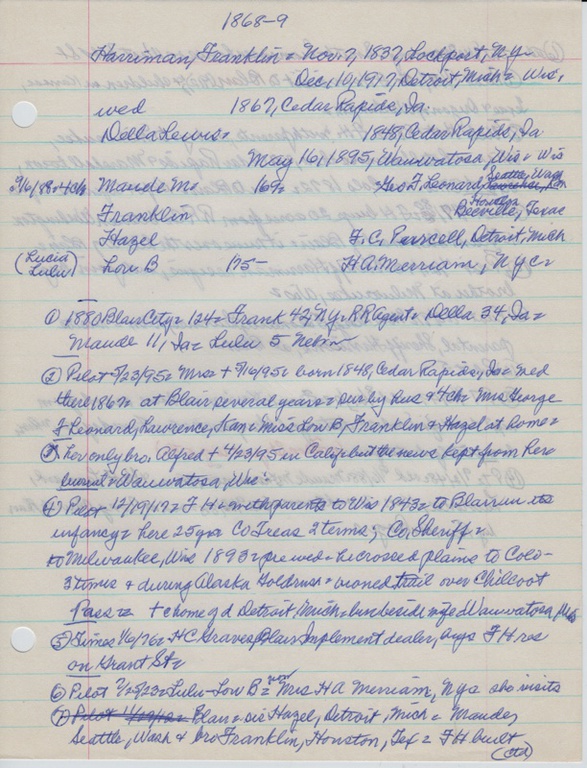 1868-9
Harriman, Franklin = Nov. 7, 1837, Lockport, N.Y.
Dec, 10, 1917, Detroit, Mich = Wis,
wed 1867, Cedar Rapids, Ia.
Della Lewis = 1848, Cedar Rapids, Ia
May 16, 1895, Wauwatosa, Wis = Wis
Maude M = 169 = Geo F. Leonard, Seattle, Wash
Franklin Houston Beeville, Texas
Hazel F. C. Purcell, Detroit, Mich
(Lucia Lulu) Lou B 175- H A. Merriam, N.Y.C =
① 1880 Blair City = 124 = Frank 42, NY = RR Agent = Della 34, Ia =
Maude 11, Ia = Lulu 5 Nebr =
② Pilot 5/23/95 = Mrs + 5/16/95 = born 1848, Cedar Rapids, Ia = wed
there 1867 = at Blair several years = sur by hus & 4 ch = Mrs George
F Leonard, Lawrence, Kan = Miss Lou B, Franklin & Hazel at home =
③ her only bro. Alfred + 4/23/95 in Calif = but the news kept from her =
burial = Wauwatosa, Wis =
④ Pilot 12/19/17 = F H = with parents to Wis 1843 = to Blair in its
infancy = here 25 yrs Co Treas 2 terms; Co, Sheriff =
to Milwaukee, Wis 1893 = pre wed = he crossed plains to Colo-
3 times & during Alaska Goldrush = trail over Chilcoot
Pass = + home of d Detroit, Mich = bur beside wife Wauwatosa, Wis
⑤ Times 1/6/76 = H C Graves, Blair Implement dealer, buys F H res
on Grant St =
⑥ Pilot 7/25/23 = Lulu = Lou B = now Mrs H A Merriam, Nyc also visits
Blair = sis Hazel, Detroit, Mich = Maude,
Seattle, Wash & bro Franklin, Houston, Tex = F H built
(ctd)